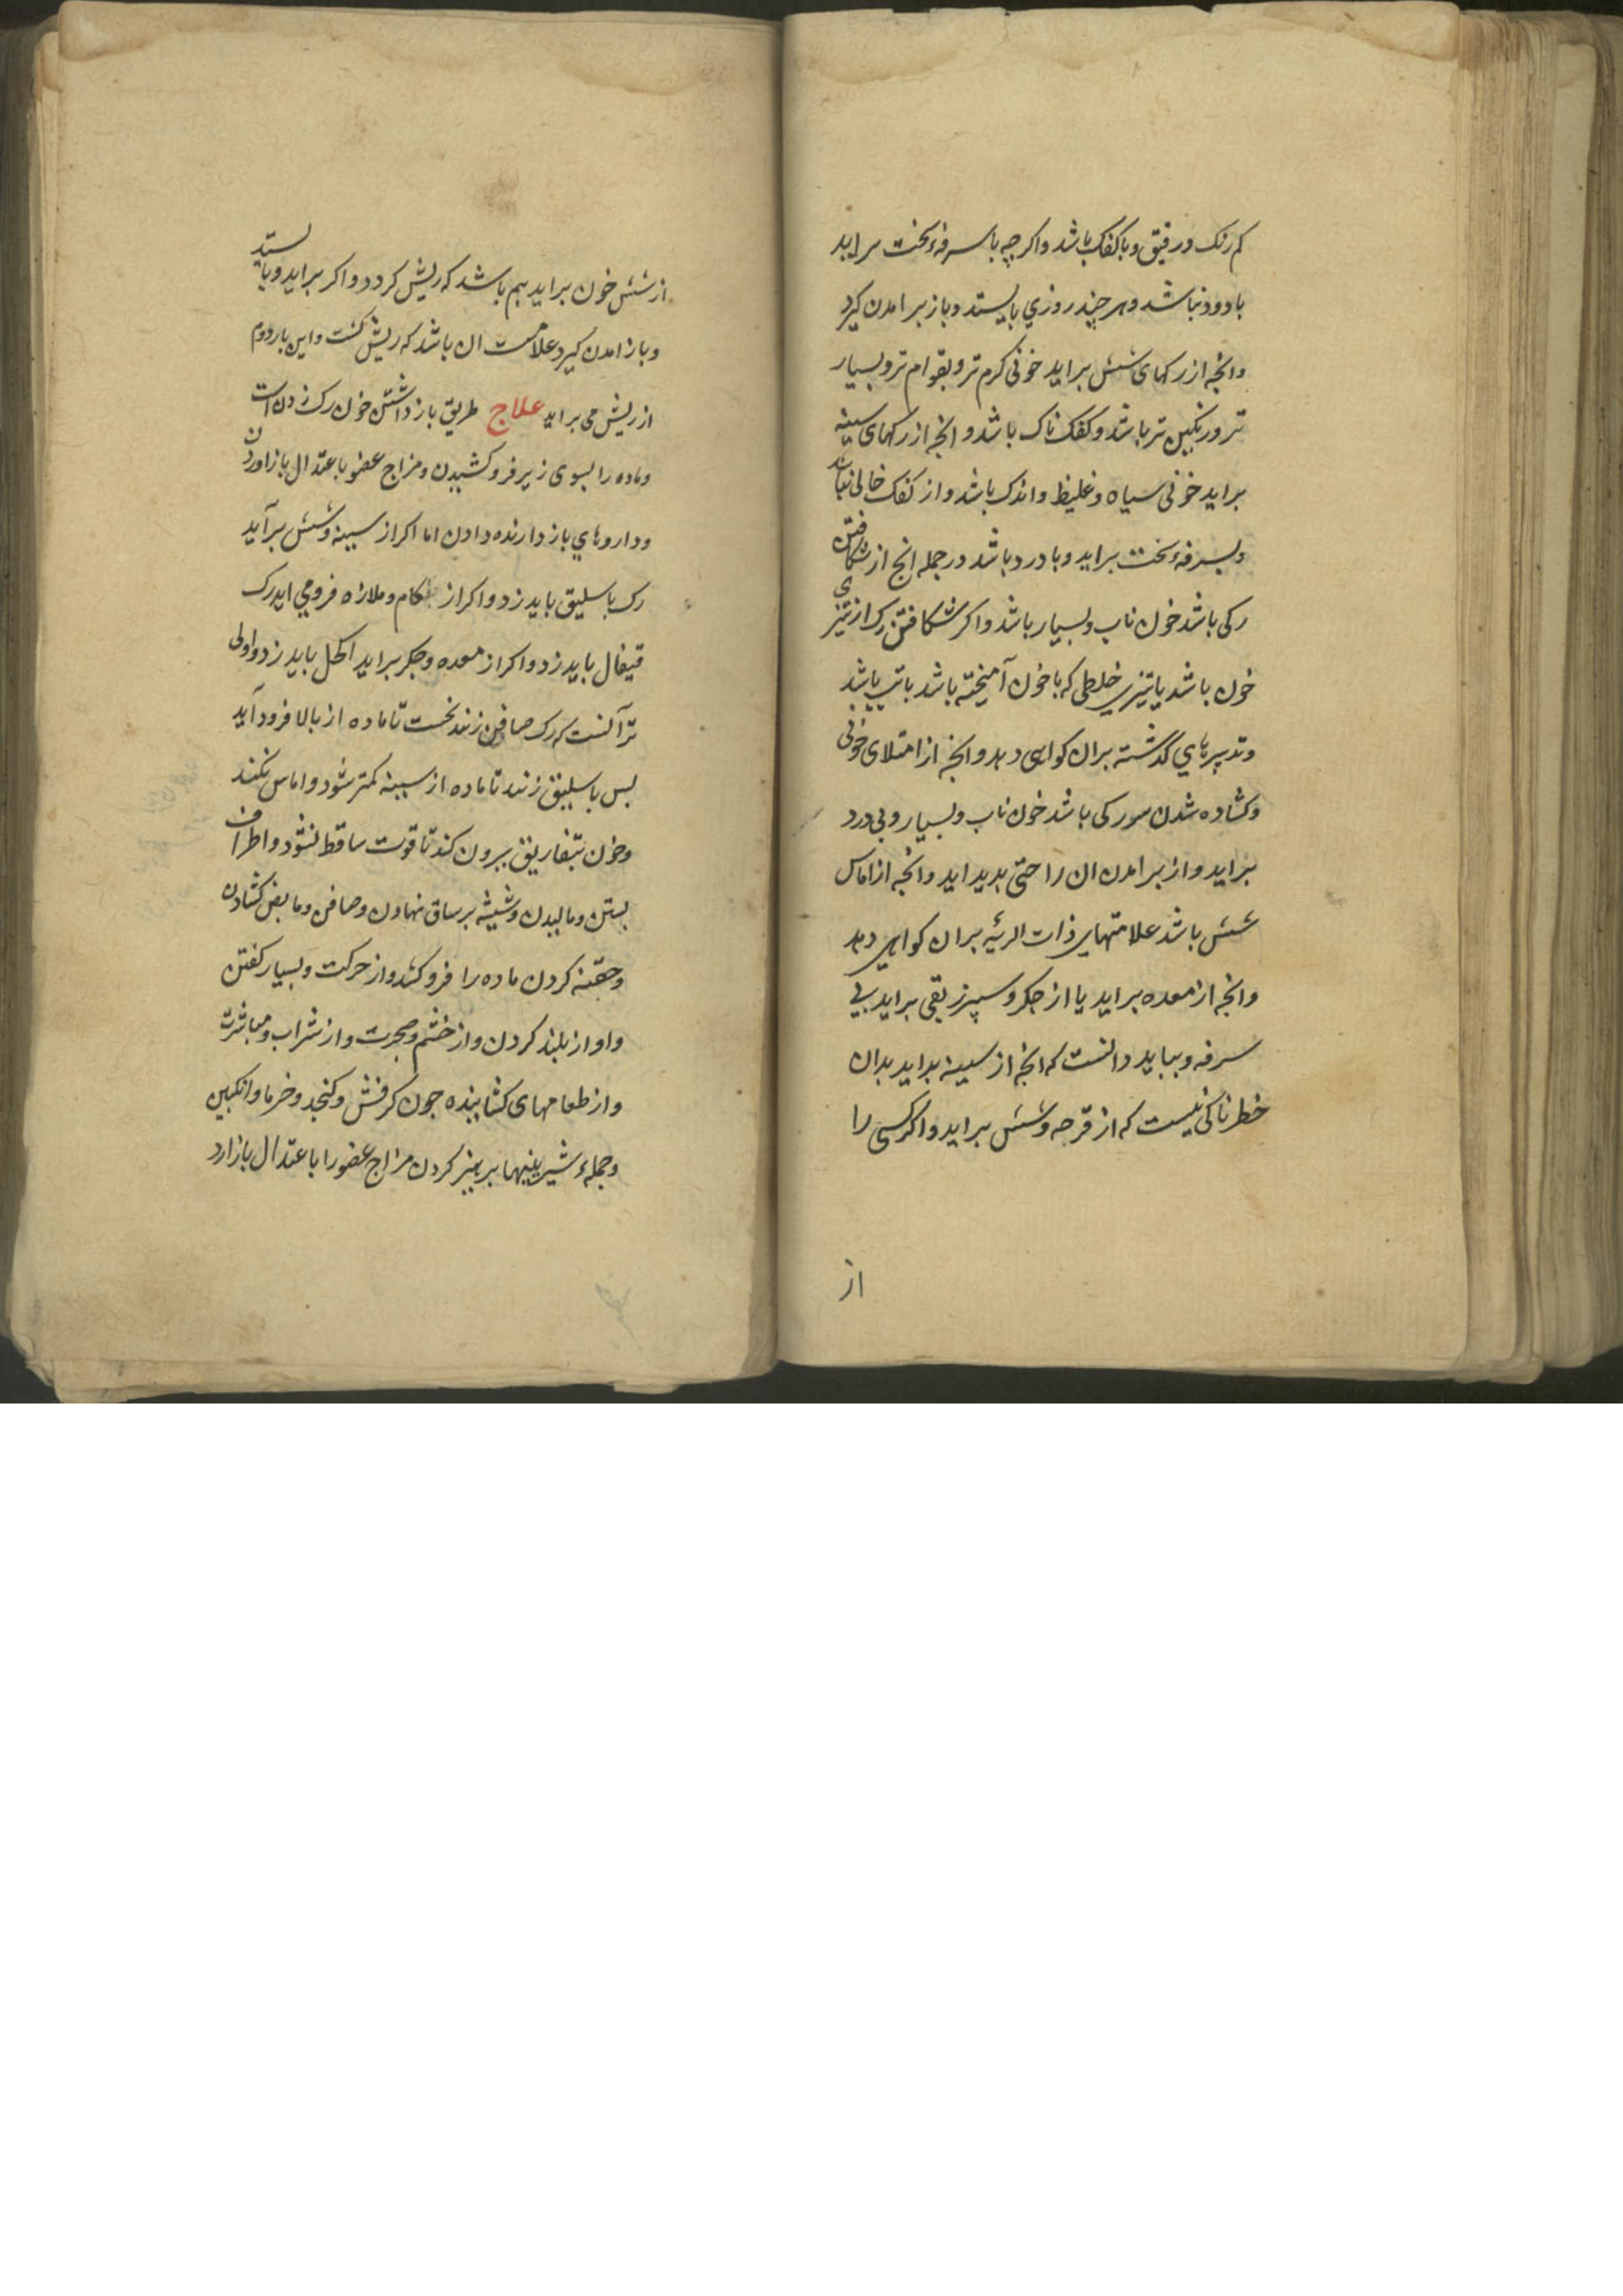 کم رنک و رقیق و با کفک باشد و اکر چه با سرفهٔ سخت براید
با دود نباشد و هر چند روزی بایستد و باز برامدن کیرد
وانچه از رکهای شش براید خونی کرم تر و بقوام تر و بسیار
تر و رنکین تر باشد و کفک ناک باشد و انچه از رکهای سینه
براید خونی سیاه و غلیظ و اندک باشد و از کفک خالی نباشد
و بسرفهٔ سخت براید و با درد باشد در جمله انج از شکافتن
رکی باشد خون ناب و بسیار باشد و اکر شکافتن رک از تیزی
خون باشد یا تیزی خلطی که با خون آمیخته باشد با تب باشد
و تدبیرهای گذشته بران کواهی دهد و انچه از امتلای خونی
و کشاده شدن سر رکی باشد خون ناب و بسیار و بی درد
براید و از برامدن ان راحتی بدید اید و انچه از اماس
شش باشد علامتهای ذات الرئیه بران کواهی دهد
و انچه از معده براید یا از جکر و سپرز بقی براید بی
سرفه و بباید دانست که انچه از سینه براید بدان
خطرناکی نیست که از قرحه و شش براید و اکر کسی را
از
از شش خون براید بیم باشد که ریش کردد و اکر براید و بایستد
و باز امدن کیرد علامت ان باشد که ریش کشت و این بار دوم
از ریش می براید علاج طریق باز داشتن خون رک زدن است
و ماده را بسوی زیر فرو کشیدن و مزاج عضو باعتدال باز اوردن
و داروهای باز دارنده دادن اما اکر از سینه و شش برآید
رک باسلیق باید زد و اکر از کام و ملازه فرو می اید رک
قیفال باید زد و اکر از معده و جکر براید اکحل باید زد و اولی
تر آنست که رک صافن زنند نخست تا ماده از بالا فرود آید
پس باسلیق زنند تا ماده از سینه کمتر شود و اماس نکند
و خون بتفاریق بیرون کند تا قوت ساقط نشود و اطراف
بستن و مالیدن و شیشه بر ساق نهادن و صافن و مابض کشادن
و حقنه کردن ماده را فرو کشد و از حرکت و بسیار کفتن
و اواز بلند کردن و از خشم و ضجرت و از شراب و مباشرت
و از طعامهای کشاینده جون کرفش و کنجد و خرما و انکبین
و جملهٔ شیرینیها پرهیز کردن مزاج عضو را باعتدال باز ارد